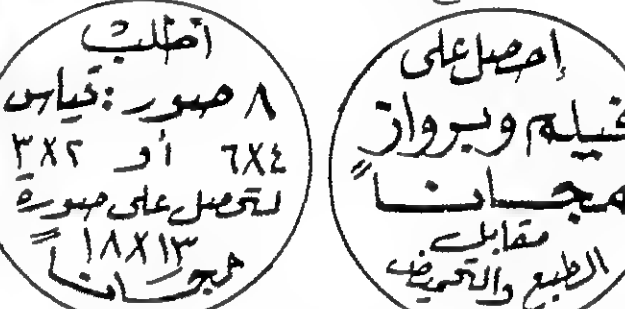 إحصل على
فيلم وبرواز
مجاناً
مقابل
الطبع والتحميض
أطلب
٨ صور : قياس
٦X٤ أو ٣X٢
لتحصل على صورة
١٨X١٣
مجاناً